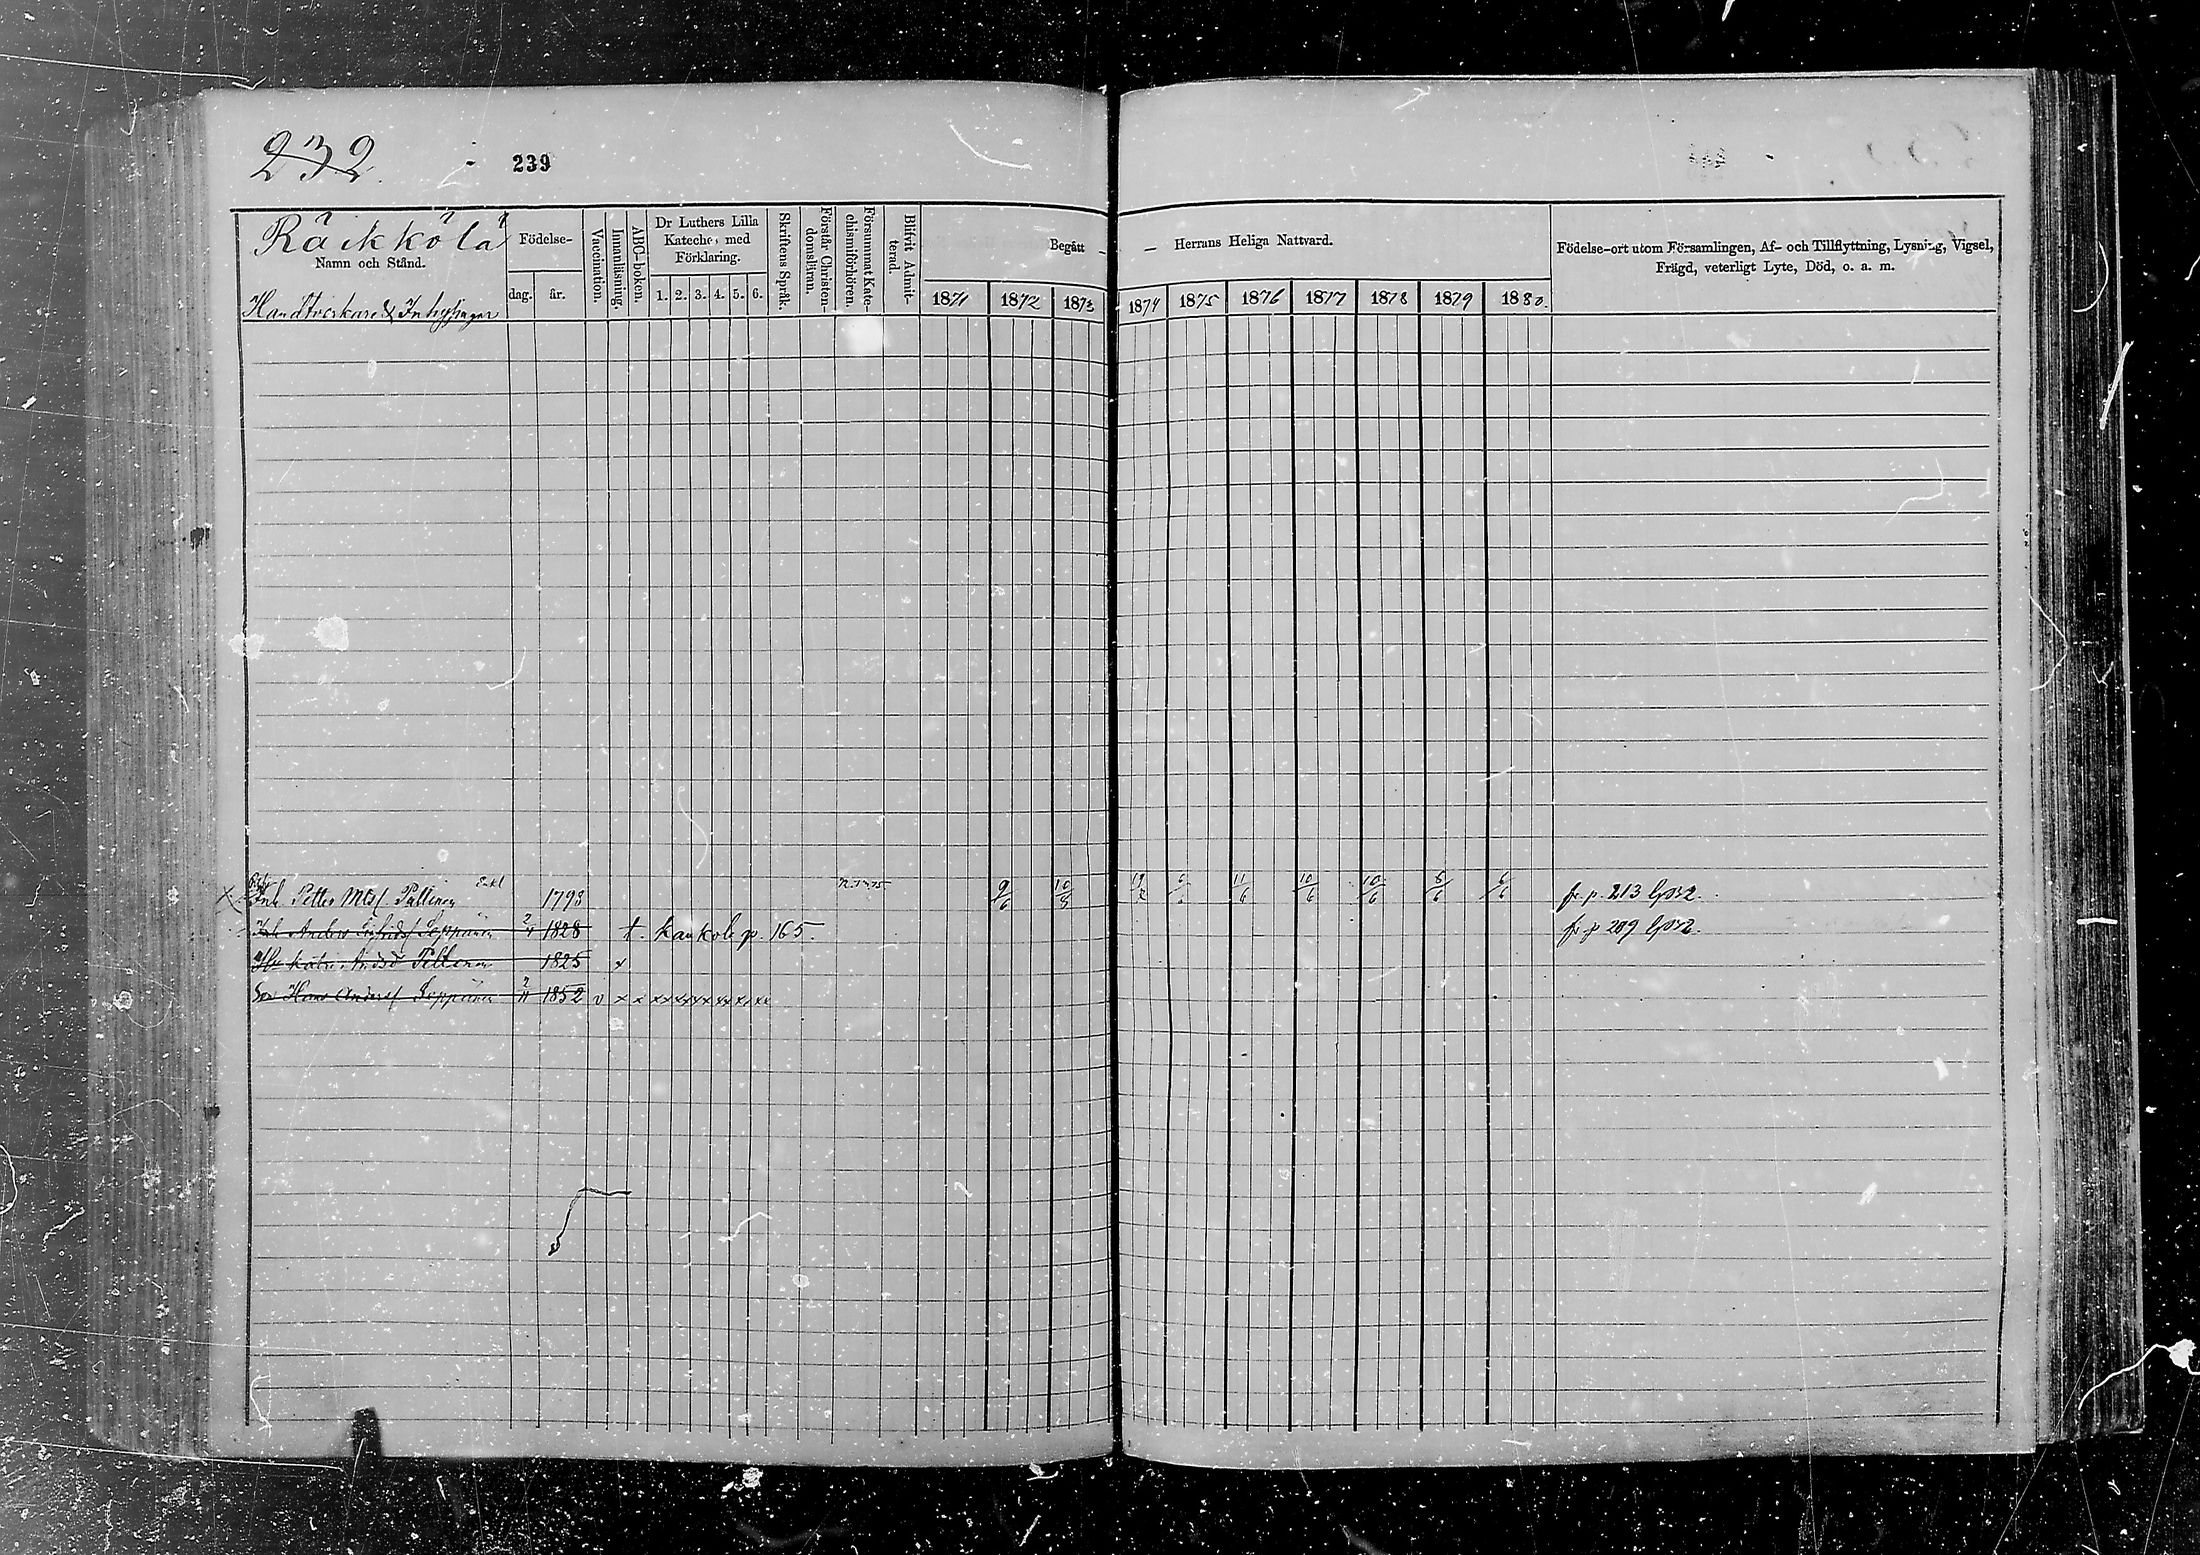 232
239
Räikkölä
Namn och Stånd.
Handtverkare & Inhysingar
Födelse-
dag. år.
Vaccination.
Innanläsning.
ABC-boken.
Dr Luthers Lilla
Kateches med
Förklaring.
1. 2. 3. 4. 5. 6.
Skriftens Språk.
Förstår Christen-
domsläran.
Försummat Kate-
chismiförhören.
Blifvit Admit-
terad.
Begått — — Herrans Heliga Nattvard.
1871 1872 1873 1874 1875 1876 1877 1878 1879 1880.
Födelse-ort utom Församlingen, Af- och Tillflyttning, Lysning, Vigsel,
Frägd, veterligt Lyte, Död, o. a. m.
Enkl
Inh. Petter Mtsf. Pältinen 1793 9/6 10/6 11/6 10/6 10/6 8/6 fr. p. 213
Anders Seppänen 2/4 1828 t. kaukola p. 165. fr p 209
Hu Katri Andsd Peltinen 1825 x
Son Hans Andersf Seppänen 2/11 1852 v x x xx xx xx xx xx xx